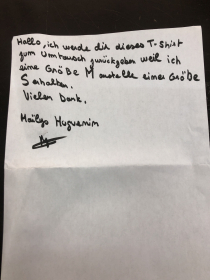 Hallo, ich werde dir dieses T-Shirt
zum Umtausch zurückgeben weil ich
eine Größe M anstelle einer Größe
S erhalten.
Vielen Dank.
Maïlys Huguenin